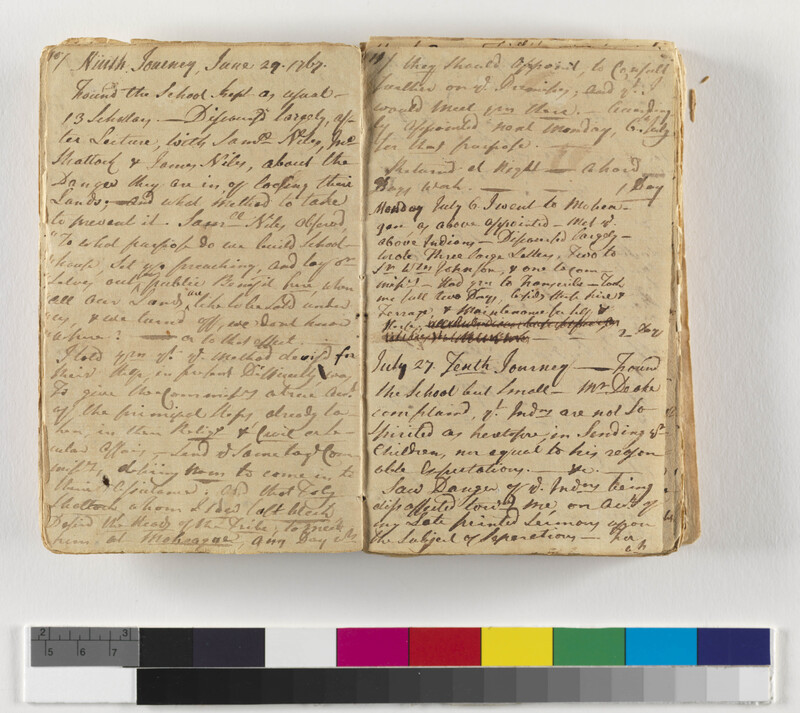 10/ Ninth Journey, June 29. 1767.
Found the School kept as usual —
13 Scholars. — Discours'd largely, af-
ter Lecture, with Sam.ll Niles, Jno
Shattock & James Niles, about the
Danger they are in, of loosing their
Lands; and what Method to take
to prevent it. Sam.ll Niles observed,
"To what purpose do we build School-
"house, Set up preaching, and lay our
selves out for public Benefit here when
all our Lands are like to be sold under
us, & we turned off, we dont know
where? — or to that effect. —
I told ym yt ye Method devis'd for
their Help, in present Difficulty, was,
To give the Commiss.rs a true Acct
of the principal Steps already ta-
ken, in their Relig.s & Civil or Se-
cular Affairs, — Send ye Same to ye Com-
miss.rs, desiring them to come in to
their Assistance: and that Toby
Shattock whom I had left
behind the Head of the Tribe, to meet
him at Moheagan, any Day
11/ they should appoint, to Consult
further on ye Premises, and yt I
would meet ym there. — Accordingly
appointed next Monday, 6. July
for that purpose. —
Returned at Night — a hard
Days work. — — 1 Day
Monday July 6. I went to Mohea-
gan as above appointed — Met ye
above Indians — Discoursed largely —
wrote Three large Letters, Two to
Sr Wm Johnson, & one to Com-
miss.rs — Had ym to Transcribe — Took
me full Two Days, besides that hire &
Ferrage, & Maintenance for Self &
Horse,
2 Days
July 27. Tenth Journey — Found
the School but Small — Mr Deake
complains, yt Inds are not So
Spirited as heretofore, in Sending yr
Children, nor equal to his reason-
able Expectations. — &c. —
Saw Danger of ye Inds being
disaffected towds me on Acct of
my Late printed Sermons upon
the Subject of Separations — For